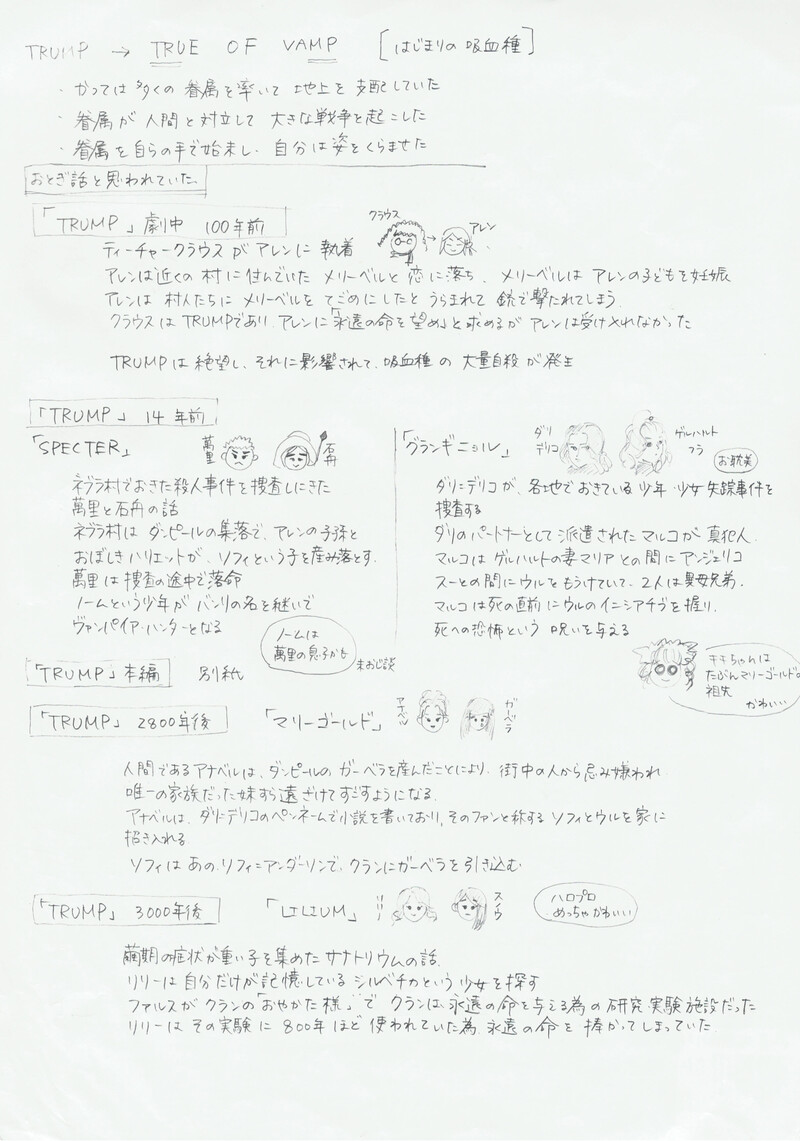 TRUMP → TRUE OF VAMP [はじまりの吸血種]
・かつては多くの眷属を率いて地上を支配していた
・眷属が人間と対立して大きな戦争を起こした
・眷属を自らの手で始末し、自分は姿をくらませた
おとぎ話と思われていた
「TRUMP」劇中 100年前
クラウス → アレン
ティーチャークラウスがアレンに執着
アレンは近くの村に住んでいたメリーベルと恋に落ち、メリーベルはアレンの子どもを妊娠
アレンは村人たちにメリーベルをてごめにしたとうらまれて銃で撃たれてしまう
クラウスはTRUMPであり、アレンに「永遠の命を望め」と求めるがアレンは受け入れなかった
TRUMPは絶望し、それに影響されて、吸血種の大量自殺が発生
「TRUMP」14年前
「SPECTER」 萬里 石舟
ネブラ村でおきた殺人事件を捜査しにきた
萬里と石舟の話
ネブラ村はダンピールの集落で、アレンの子孫と
おぼしきハリエットが、ソフィという子を産み落とす。
萬里は捜査の途中で落命
ノームという少年がバンリの名を継いで
ヴァンパイア・ハンターとなる
ノームは
萬里の息子かも
末おじ談
「グランギニョル」 ダリデリコ ゲルハルトフラ お耽美
ダリ=デリコが、各地でおきている少年・少女失踪事件を
捜査する
ダリのパートナーとして派遣されたマルコが真犯人
マルコはゲルハルトの妻マリアとの間にアンジェリコ
スーとの間にウルをもうけていて、2人は異母兄弟.
マルコは死の直前にウルのイニシアチヴを握り、
死への恐怖という呪いを与える
キキちゃんは
たぶんマリーゴールドの
祖先
かわいい
「TRUMP」本編 別紙
「TRUMP」2800年後 「マリーゴールド」 アナベル ガーベラ
人間であるアナベルは、ダンピールのガーベラを産んだことにより、街中の人から忌み嫌われ
唯一の家族だった妹すら遠ざけてすごすようになる
アナベルは、ダリ=デリコのペンネームで小説を書いており、そのファンと称するソフィとウルを家に
招き入れる
ソフィはあの、ソフィ=アンダーソンで、クランにガーベラを引き込む
「TRUMP」3000年後 「LILIUM」 リリー スノウ
ハロプロ
めっちゃかわいい
繭期の症状が重い子を集めたサナトリウムの話
リリーは自分だけが記憶しているシルベチカという少女を探す
ファルスがクランの「おやかた様」でクランは永遠の命を与える為の研究・実験施設だった
リリーはその実験に800年ほど使われていた為、永遠の命を捧かってしまっていた.